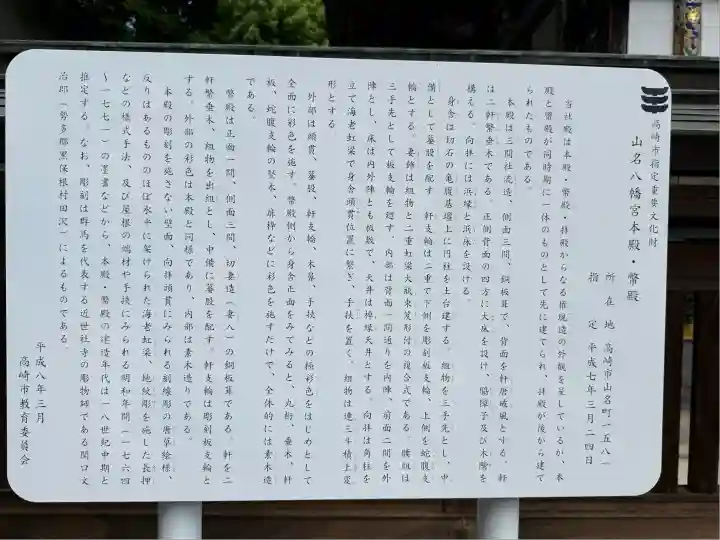 高崎市指定重要文化財
山名八幡宮本殿・幣殿
所在地 高崎市山名町一五八一
指定 平成七年三月二四日
当社殿は本殿・幣殿・拝殿からなる権現造の外観を呈しているが、本
殿と幣殿が同時期に一体のものとして先に建てられ、拝殿が後から建て
られたものである。
本殿は三間社流造、側面三間、銅板葺で、背面を軒唐破風とする。軒
は二軒繁垂木である。正側背面の四方に大床を設け、脇障子及び木階を
構える。向拝には浜縁と浜床を設ける。
身舎は切石の亀腹基壇上に円柱を土台建する。組物を三手先とし、中
備として蟇股を配す。軒支輪は二重で下側を彫刻板支輪、上側を蛇腹支
輪とする。妻飾は組物と二重虹梁大瓶束笈形付の複合式である。腰組は
三手先として板支輪を廻す。内部は背面一間通りを内陣、前面二間を外
陣とし、床は内外陣とも板敷で、天井は棹縁天井とする。向拝は角柱を
立て海老虹梁で身舎頭貫位置に繋ぎ、手挟を置く。組物は連三斗積上変
形とする
外部は頭貫、蟇股、軒支輪、木鼻、手挟などの極彩色をはじめとして
全面に彩色を施す。幣殿側から身舎正面をみてみると、丸桁、垂木、軒
板、蛇腹支輪の竪木、扉枠などに彩色を施すだけで、全体的には素木造
である。
幣殿は正面一間、側面三間、切妻造(妻入)の銅板葺である。軒を二
軒繁垂木、組物を出組とし、中備に蟇股を配す。軒支輪は彫刻板支輪と
する。外部の彩色は本殿と同様であり、内部は素木造りである。
本殿の彫刻を施さない壁面、向拝頭貫にみられる刻線彫の唐草絵様、
反りはあるもののほぼ水平に架けられた海老虹梁、地紋彫を施した長押
などの様式手法、及び屋根の端材や手挟にみられる明和年間(一七六四
～一七七一)の墨書などから、本殿・幣殿の建造年代は一八世紀中期と
推定する。なお、彫刻は群馬を代表する近世社寺の彫物師である関口文
治郎(勢多郡黒保根村田沢)によるものである。
平成八年三月
高崎市教育委員会